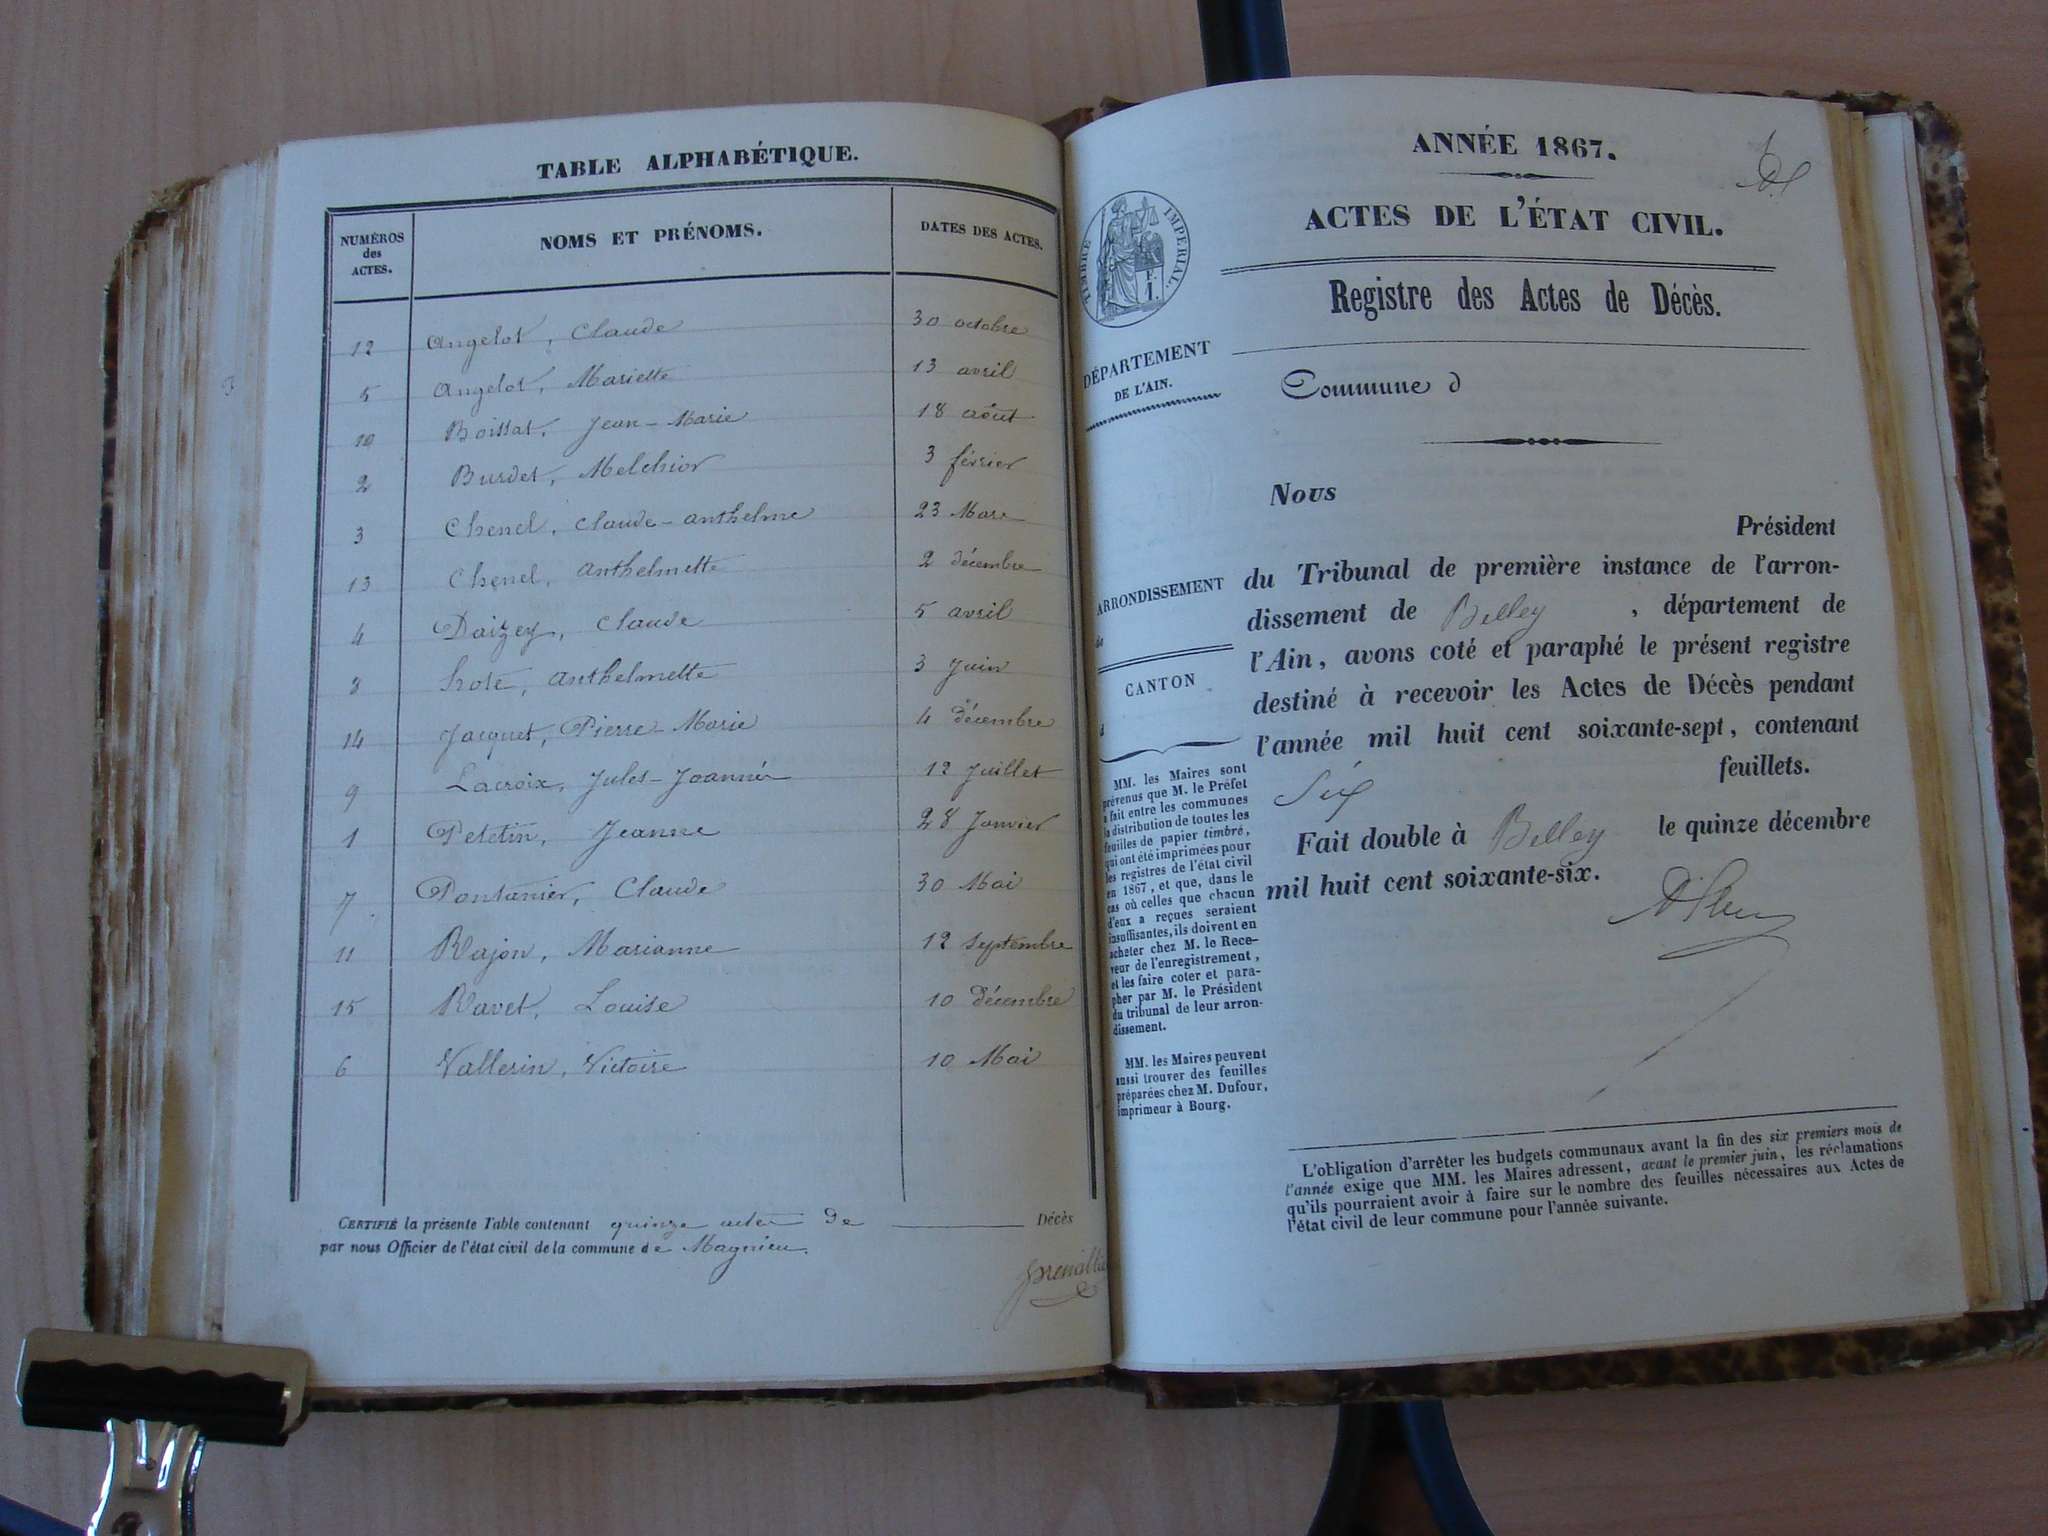 TABLE ALPHABÉTIQUE.
NUMÉROS des ACTES. NOMS ET PRÉNOMS. DATES DES ACTES.
12 Angelot, Claude 30 octobre
5 Angelot, Mariette 13 avril
10 Boissat, Jean-Marie 18 août
2 Burdet, Melchior 3 février
3 Chenel, Claude-Anthelme 23 Mars
13 Chenel, Anthelmette 2 décembre
4 Daizey, Claude 5 avril
8 Anthelmette 3 Juin
14 Jacquet, Pierre-Marie 4 décembre
9 Lacroix, Jules-Joannès 12 Juillet
1 Peletin, Jeanne 28 Janvier
7 Pontanier, Claude 30 Mai
11 Rajon, Marianne 12 Septembre
15 Ravet, Louise 10 décembre
6 Vallerin, Victoire 10 Mai
CERTIFIÉ la présente Table contenant quinze actes de Décès
par nous Officier de l'état civil de la commune de Magnieu.
ANNÉE 1867.
ACTES DE L'ÉTAT CIVIL.
TIMBRE IMPÉRIAL.
Registre des Actes de Décès.
DÉPARTEMENT
DE L'AIN.
Commune d
Nous
Président
ARRONDISSEMENT
de
CANTON
d
du Tribunal de première instance de l'arron-
dissement de Belley , département de
l'Ain, avons coté et paraphé le présent registre
destiné à recevoir les Actes de Décès pendant
l'année mil huit cent soixante-sept, contenant
Six feuillets.
Fait double à Belley le quinze décembre
mil huit cent soixante-six.
MM. les Maires sont
prévenus que M. le Préfet
a fait entre les communes
la distribution de toutes les
feuilles de papier timbré,
qui ont été imprimées pour
les registres de l'état civil
en 1867, et que, dans le
cas où celles que chacun
d'eux a reçues seraient
insuffisantes, ils doivent en
acheter chez M. le Rece-
veur de l'enregistrement,
et les faire coter et para-
pher par M. le Président
du tribunal de leur arron-
dissement.
MM. les Maires peuvent
aussi trouver des feuilles
préparées chez M. Dufour,
imprimeur à Bourg.
L'obligation d'arrêter les budgets communaux avant la fin des six premiers mois de
l'année exige que MM. les Maires adressent, avant le premier juin, les réclamations
qu'ils pourraient avoir à faire sur le nombre des feuilles nécessaires aux Actes de
l'état civil de leur commune pour l'année suivante.